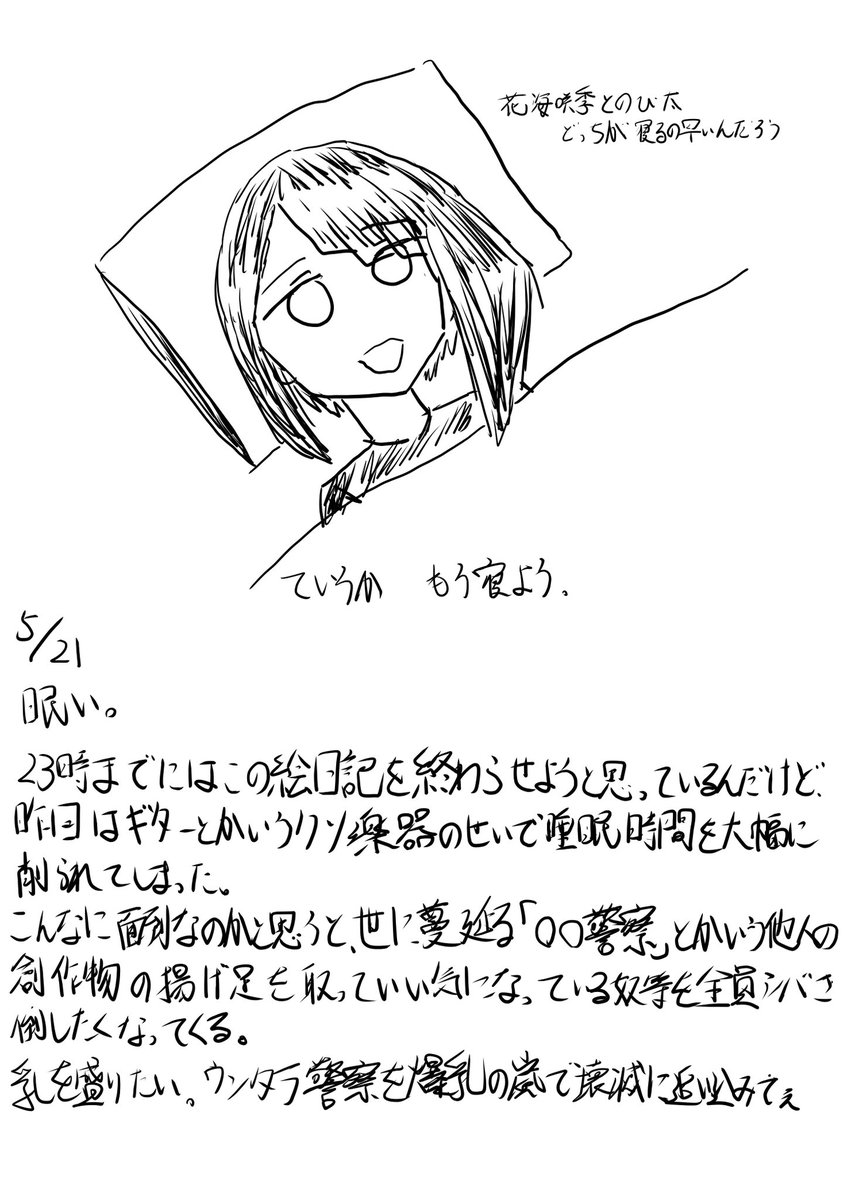 花海咲季とのび太
どっちが寝るの早いんだろう
ていうか もう寝よう。
5/21
眠い。
23時までにはこの絵日記を終わらせようと思っているんだけど、
昨日はギターとかいうクソ楽器のせいで睡眠時間を大幅に
削られてしまった。
こんなに面倒なのかと思うと、世に蔓延る「〇〇警察」とかいう他人の
創作物の揚げ足を取っていい気になっている奴等を全員シバき
倒したくなってくる。
乳を盛りたい。ウンタラ警察を爆乳の嵐で壊滅に追い込みてぇ